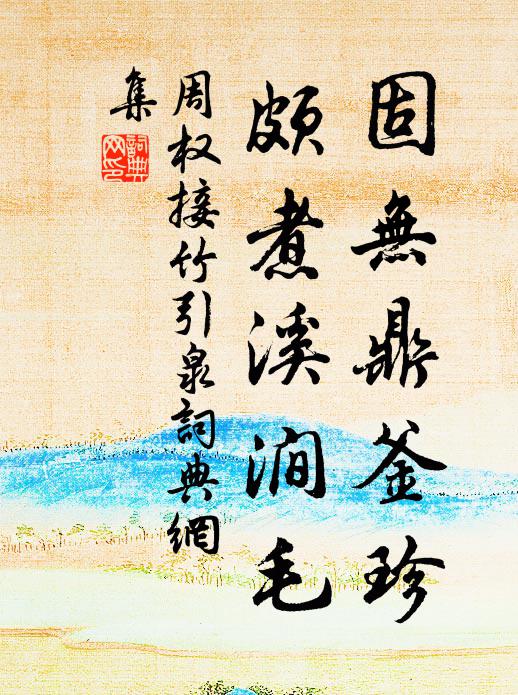 固無鼎釜珍
頗煮溪澗毛
周权接竹引泉詞典網
集
詞典
网印